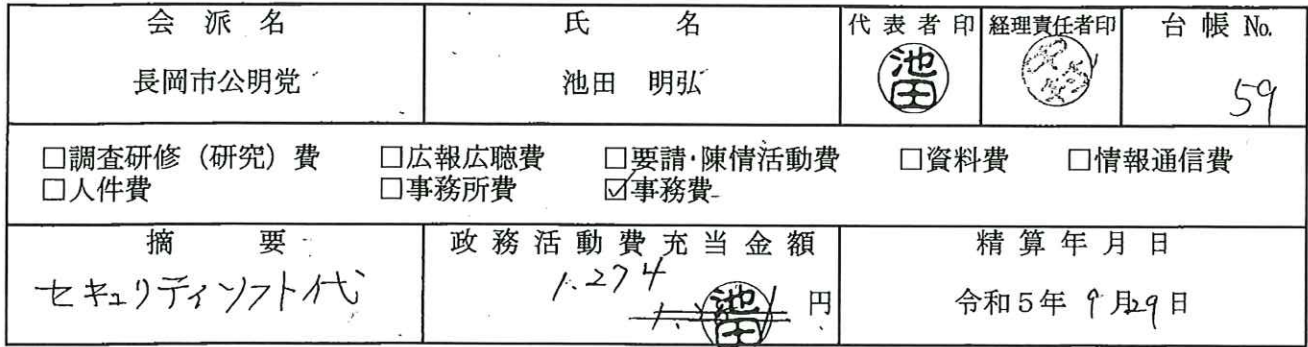 会派名 氏名 代表者印 経理責任者印 台帳No.
長岡市公明党 池田 明弘 池田 59
□調査研修（研究）費 □広報広聴費 □要請・陳情活動費 □資料費 □情報通信費
□人件費 □事務所費 ☑事務費
摘要 政務活動費充当金額 精算年月日
セキュリティソフト代 1.274 円 令和5年9月29日
池田